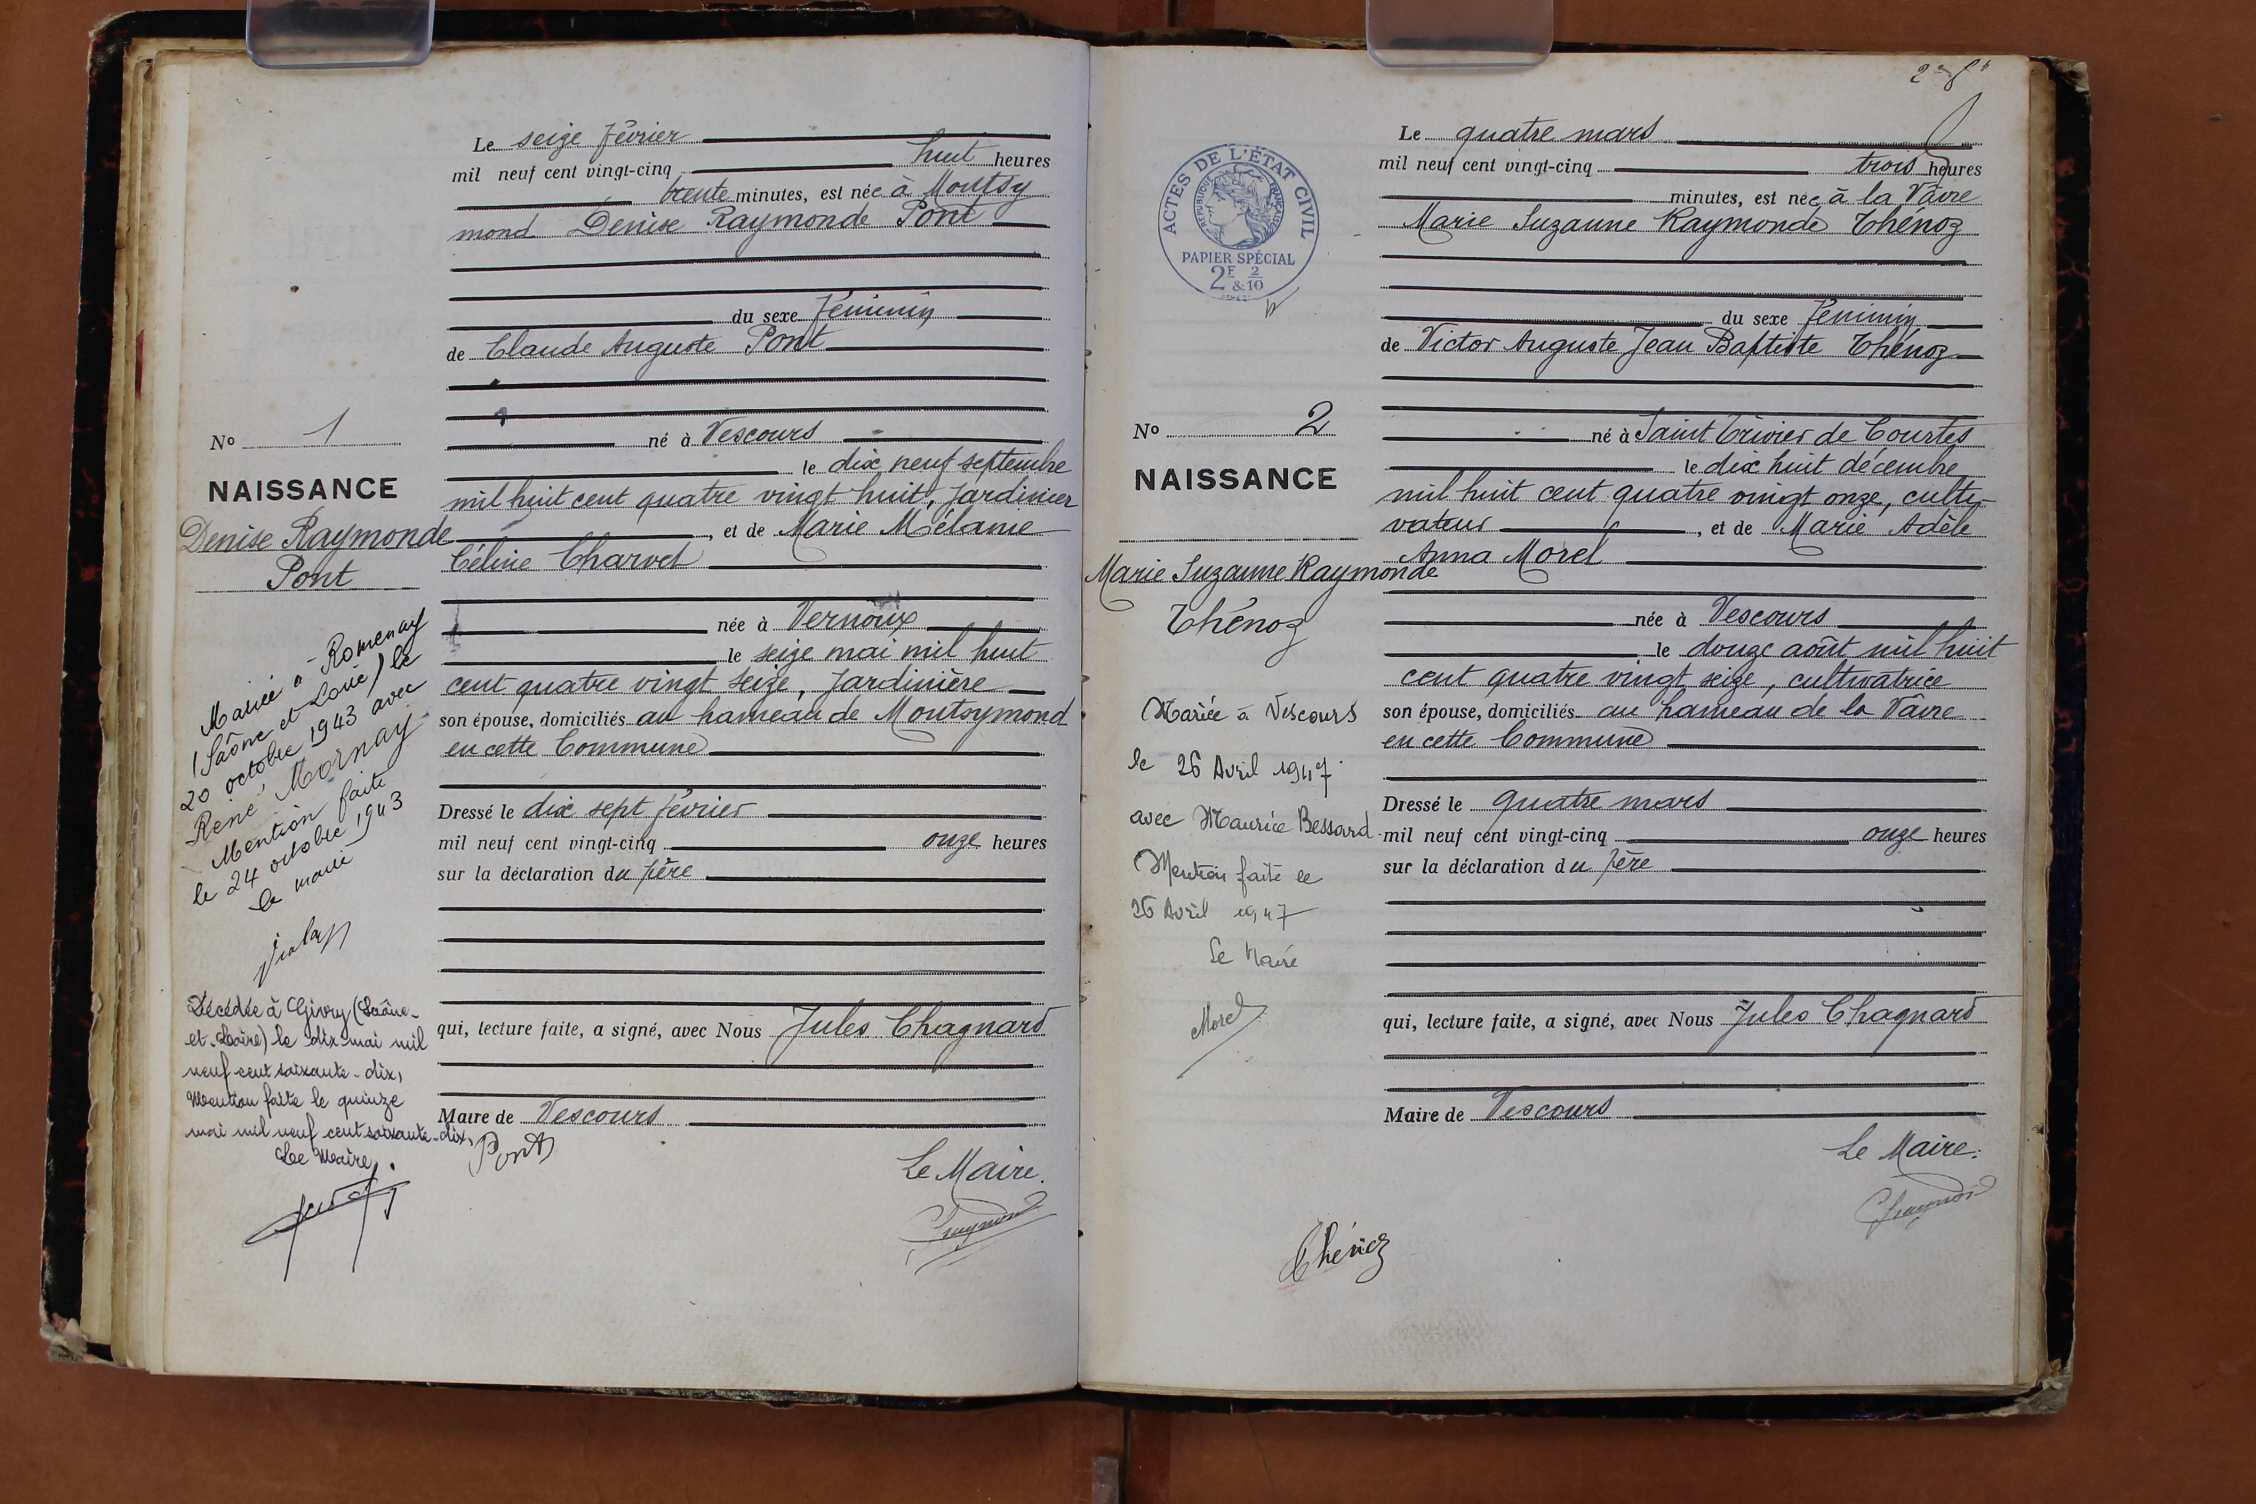 Le seize février
mil neuf cent vingt-cinq huit heures
trente minutes, est née à Montsy
mond Denise Raymonde Pont
du sexe féminin
de Claude Auguste Pont
né à Vescours
le dix neuf septembre
mil huit cent quatre vingt huit, jardinier
, et de Marie Mélanie
Céline Charvet
née à Vernoux
le seize mai mil huit
cent quatre vingt seize, jardinière
son épouse, domiciliés au hameau de Montsymond
en cette Commune
Dressé le dix sept février
mil neuf cent vingt-cinq onze heures
sur la déclaration du père
qui, lecture faite, a signé, avec Nous Jules Chagnard
Maire de Vescours
Pont
Le Maire.
Chagnard
No 1
NAISSANCE
Denise Raymonde
Pont
Mariée à Romenay
(Saône et Loire) le
20 octobre 1943 avec
René Mornay
Mention faite
le 24 octobre 1943
le maire
Décédée à Givry (Saône-
et-Loire) le dix mai mil
neuf cent soixante-dix,
Mention faite le quinze
mai mil neuf cent soixante-dix,
Le Maire,
ACTES DE L'ÉTAT CIVIL
RÉPUBLIQUE FRANÇAISE
PAPIER SPÉCIAL
2F 2
&10
Le quatre mars
mil neuf cent vingt-cinq trois heures
minutes, est née à la Vavre
Marie Suzanne Raymonde Thénoz
du sexe féminin
de Victor Auguste Jean Baptiste Thénoz
né à Saint Trivier de Courtes
le dix huit décembre
mil huit cent quatre vingt onze, culti-
vateur, et de Marie Adèle
Anna Morel
née à Vescours
le douze août mil huit
cent quatre vingt seize, cultivatrice
son épouse, domiciliés au hameau de la Vavre
en cette Commune
Dressé le quatre mars
mil neuf cent vingt-cinq onze heures
sur la déclaration du père
qui, lecture faite, a signé, avec Nous Jules Chagnard
Maire de Vescours
Le Maire.
Chagnard
Thénoz
No 2
NAISSANCE
Marie Suzanne Raymonde
Thénoz
Mariée à Vescours
le 26 Avril 1947
avec Maurice Bessard
Mention faite le
26 Avril 1947
Le Maire
Morel